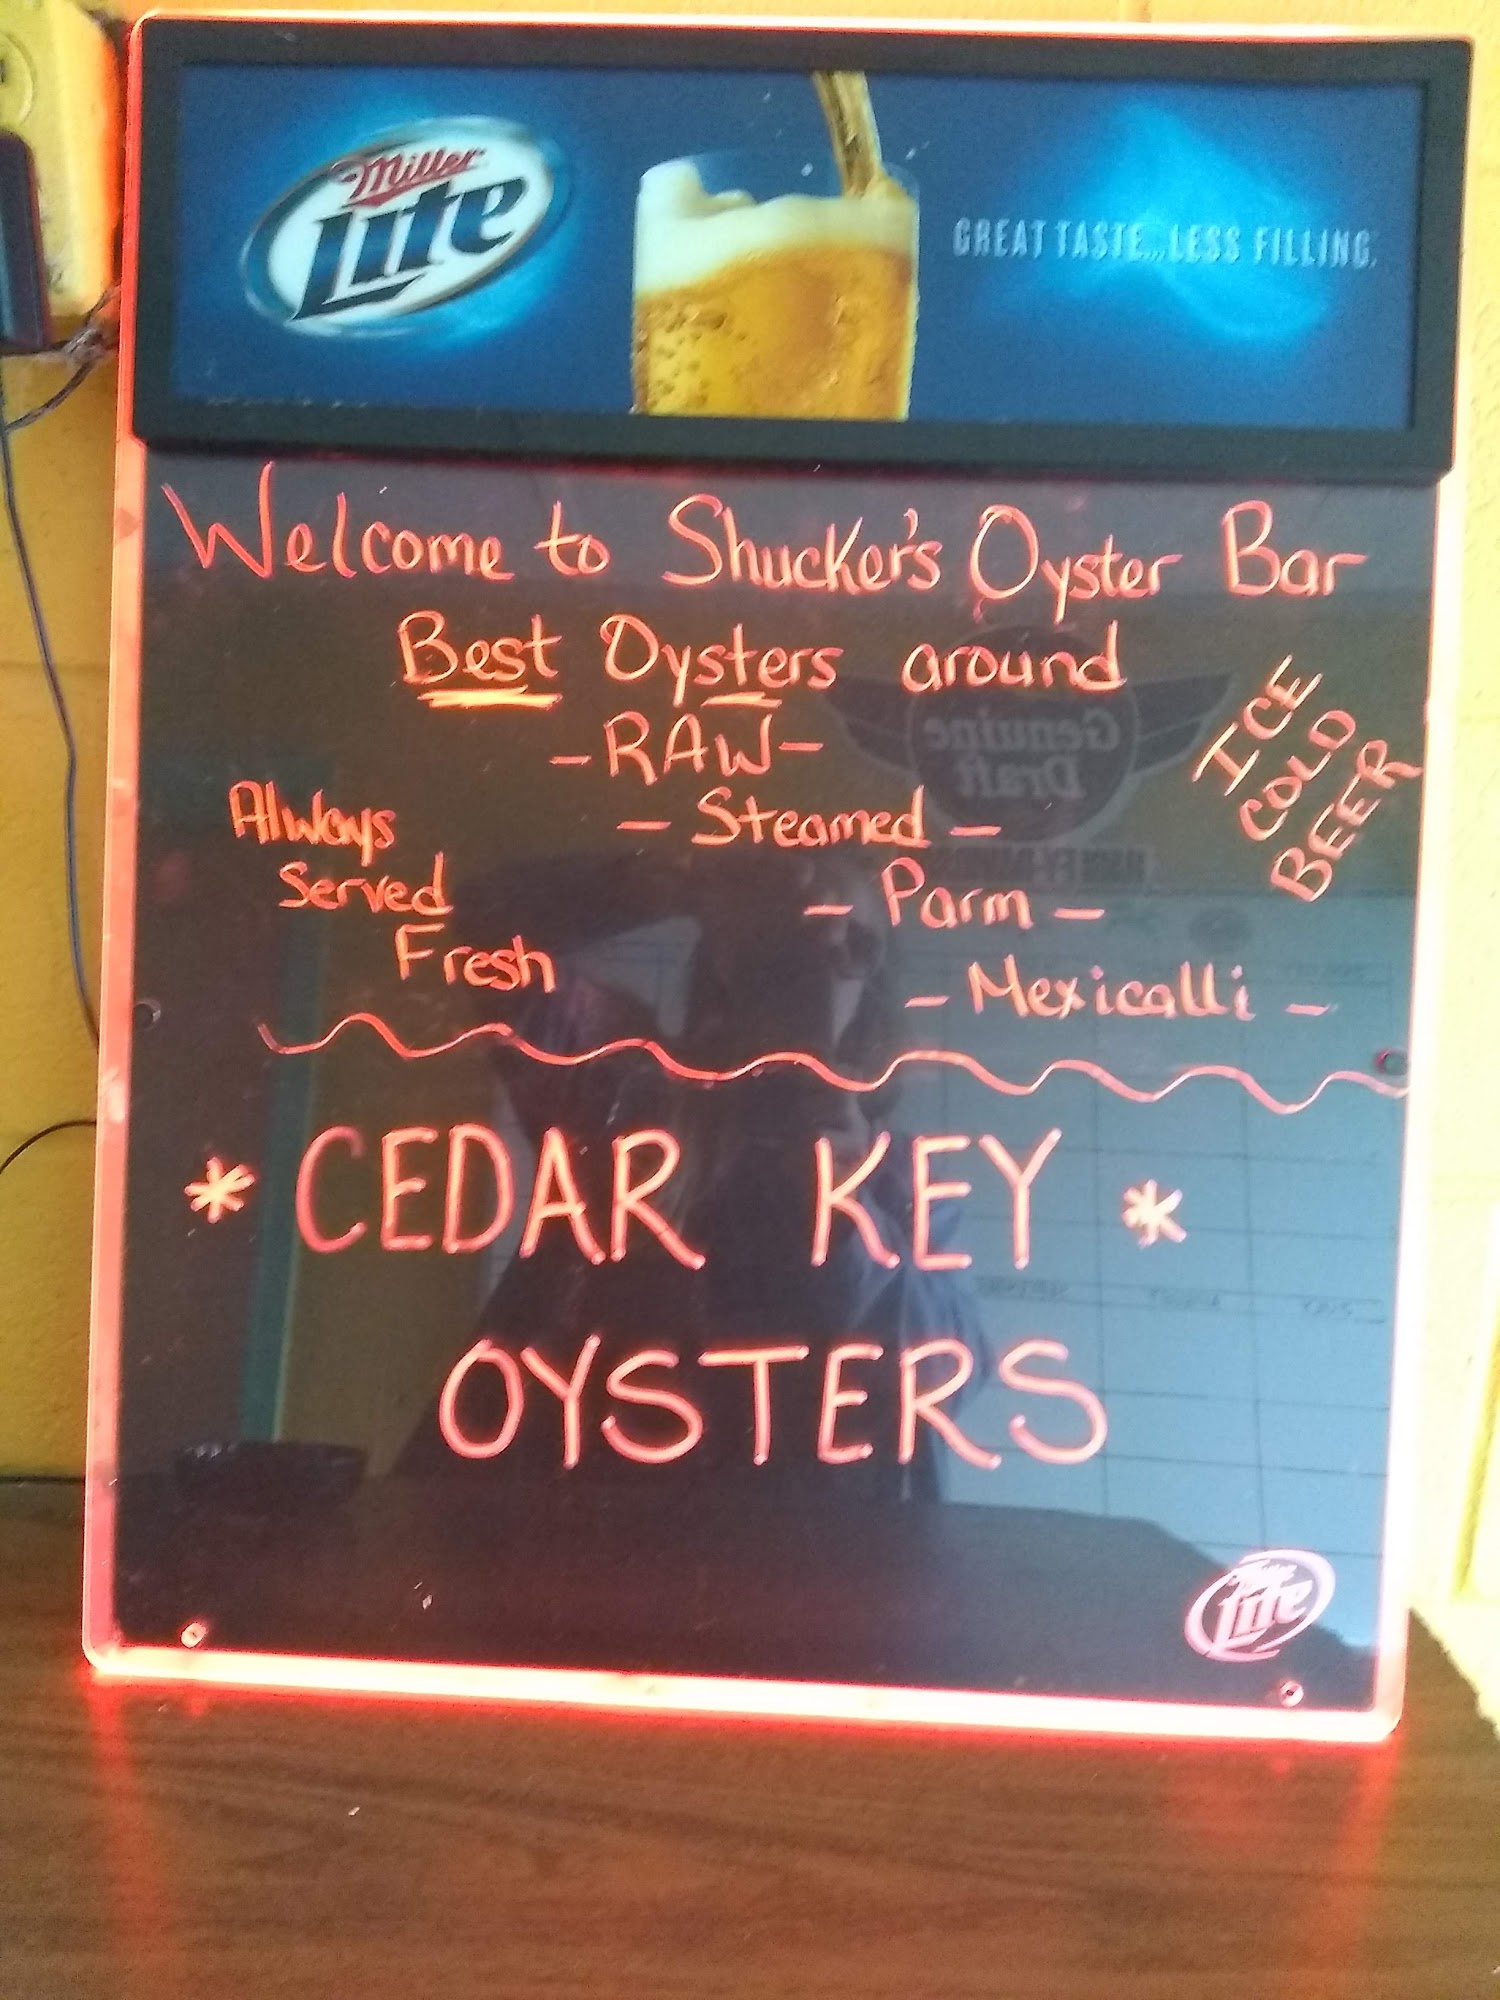 Miller
Lite
GREAT TASTE...LESS FILLING.
Welcome to Shucker's Oyster Bar
Best Oysters around
-RAW-
- Steamed -
- Parm -
- Mexicalli -
Always
Served
Fresh
ICE
COLD
BEER
* CEDAR KEY *
OYSTERS
Miller
Lite
Genuine
Draft